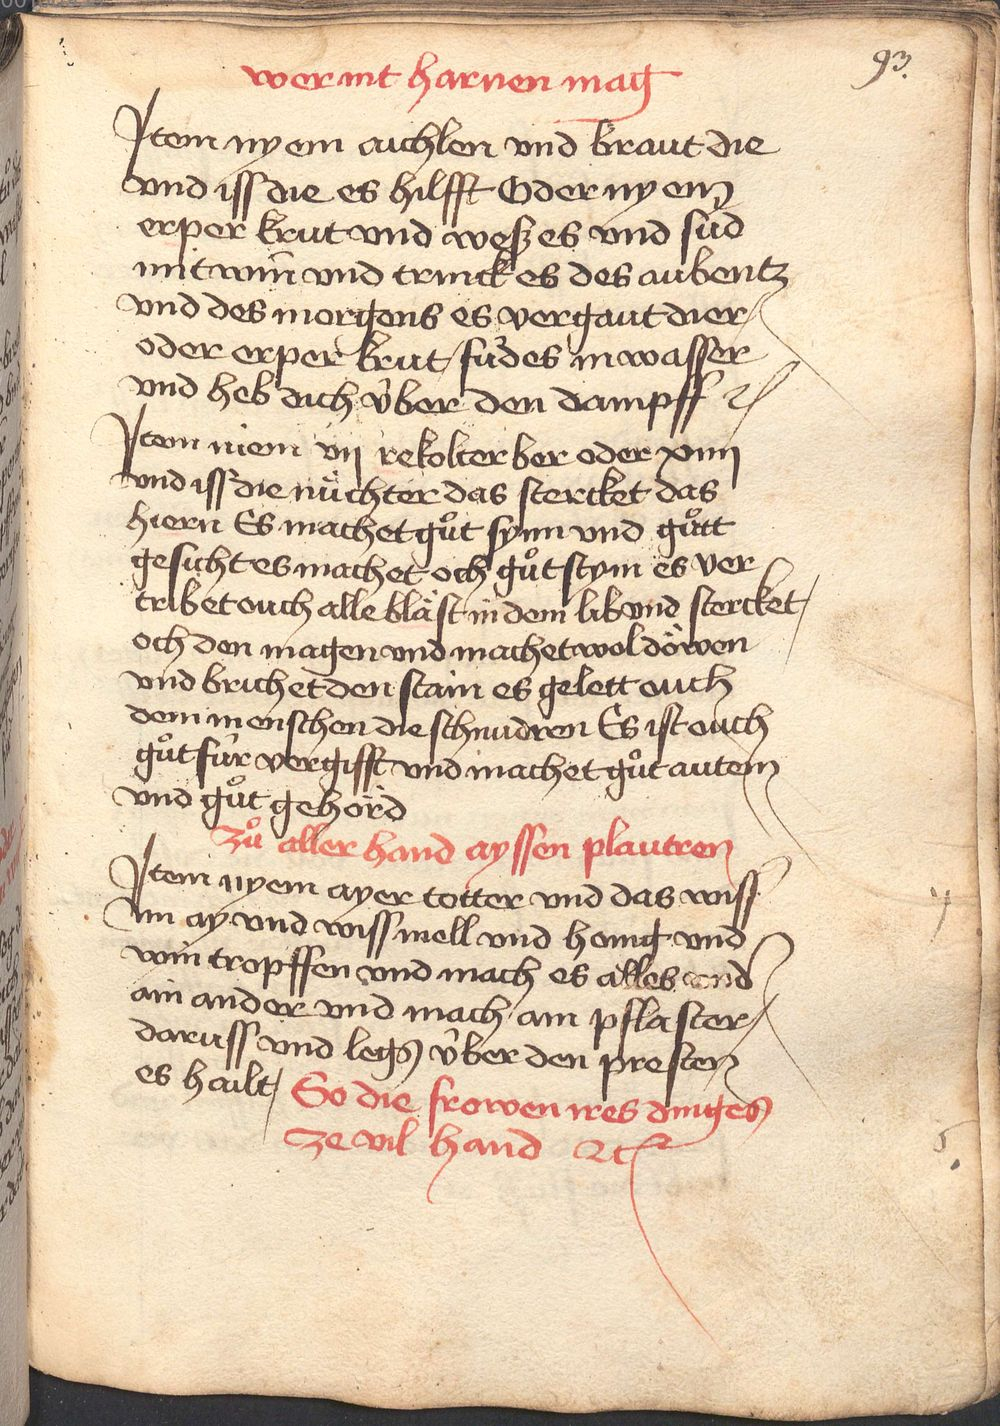 93.
wer nit harnen mag
Item nyem aichlen und braut die
und iss die es hilfft Oder nyem
erper krut und wesz es und sud
mit win und trinck es des aubentz
und des morgens es vergaut dier
oder erper krut / sud es in wasser
und heb dich über den dampff
Item niem vij rekolter ber oder xiiij
und iss die nüchter das stercket das
hiern Es machet gůt synn und gůtt
gesicht es machet och gůt stym es ver
tribet ouch alle bläst in dem lib und stercket
och den magen und machet wol döwen
und brichet den stain es gelett ouch
dem menschen die schnudren Es ist ouch
gůt für vergifft und machet gůt autem
und gůt gehörd
Zů aller hand ayssen plautren
Item nyem ayer totter und das wiss
im ay und wiss mell und honig und
win tropffen und mach es alles und
ain ander und mach ain pflaster
daruss und legs über den presten
es hailt / So die frowen ires dinges
ze vil hand